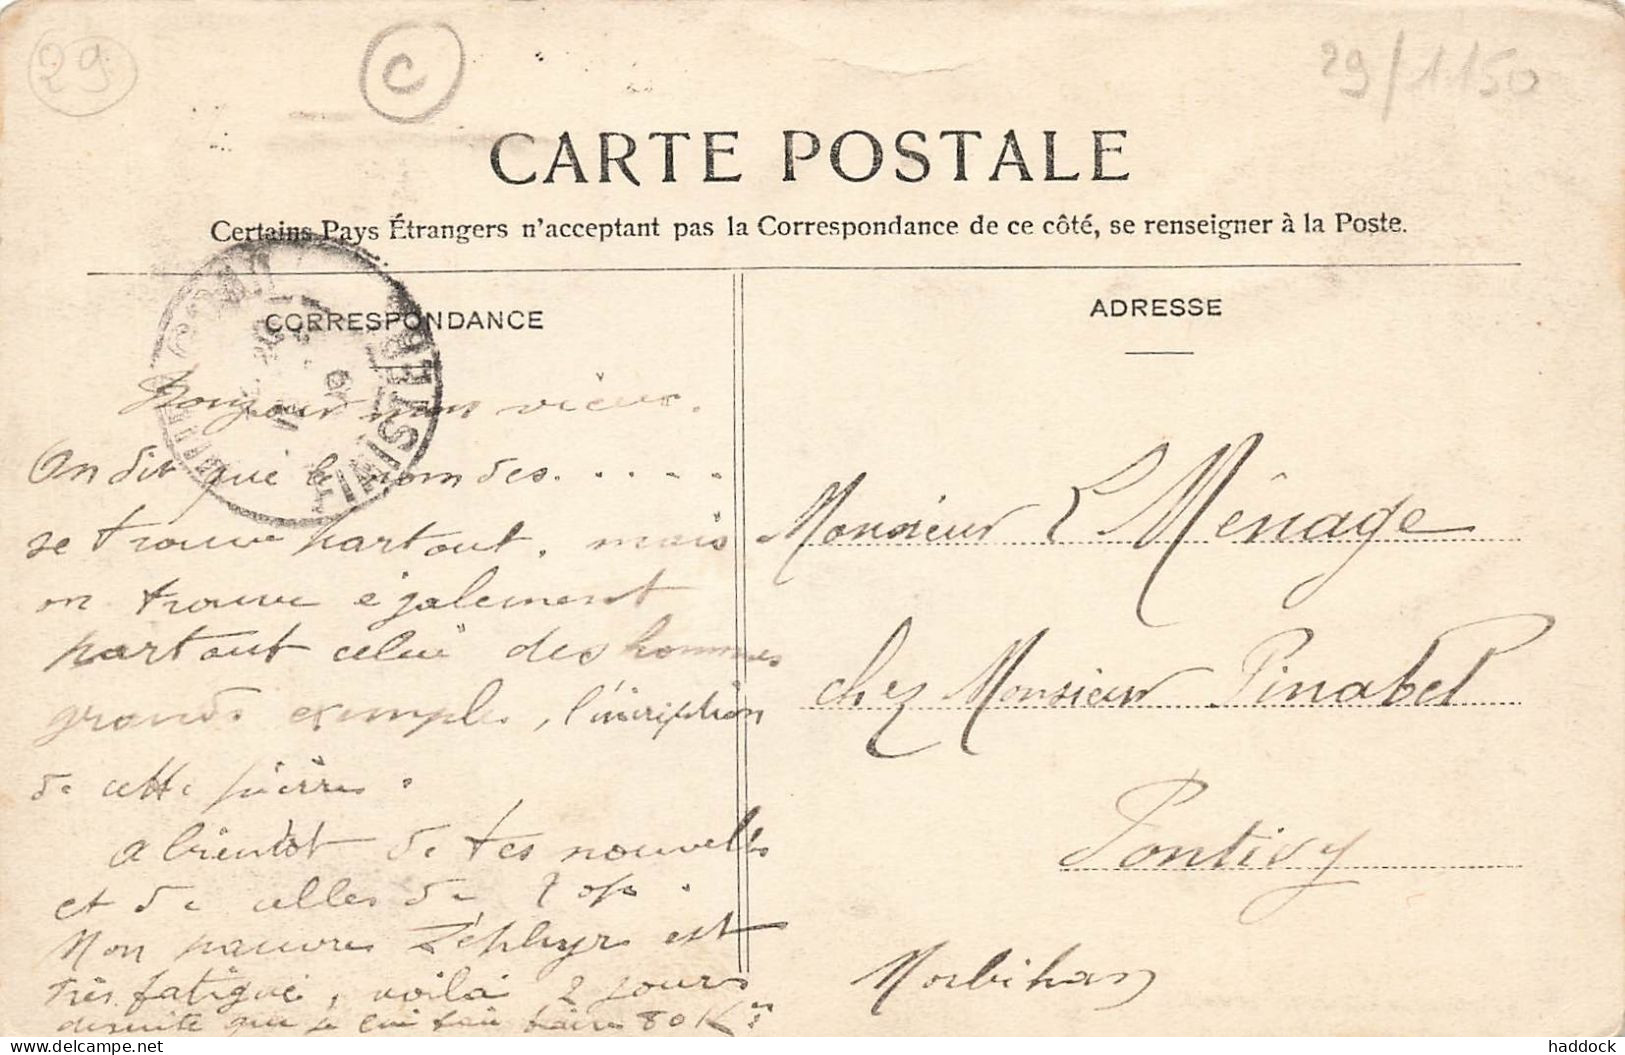 29
C
29/1150
CARTE POSTALE
Certains Pays Étrangers n'acceptant pas la Correspondance de ce côté, se renseigner à la Poste.
CORRESPONDANCE
FINISTERE
Bonjour mon vieux.
On dit que le nom des. . . . .
se trouve partout, mais
on trouve également
partout celui des hommes
grands exemples, l'inscription
de cette pierre.
A bientôt de tes nouvelles
et de celles de
Mon pauvre Zéphyr est
très fatigué, voilà 2 jours
de suite que je lui fais faire 80 Kes
ADRESSE
Monsieur L Ménage
chez Monsieur Pinabel
Pontivy
Morbihan
delcampe.net
haddock